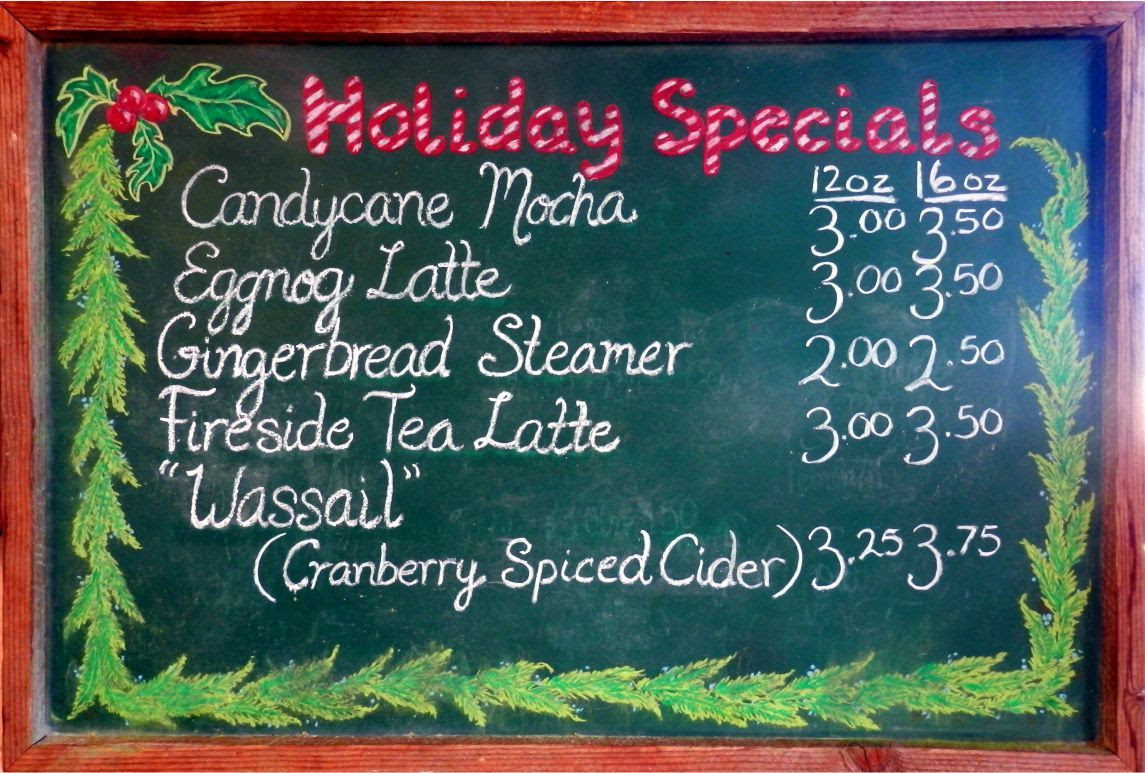 Holiday Specials
12oz 16oz
Candycane Mocha 3.00 3.50
Eggnog Latte 3.00 3.50
Gingerbread Steamer 2.00 2.50
Fireside Tea Latte 3.00 3.50
"Wassail"
(Cranberry Spiced Cider) 3.25 3.75